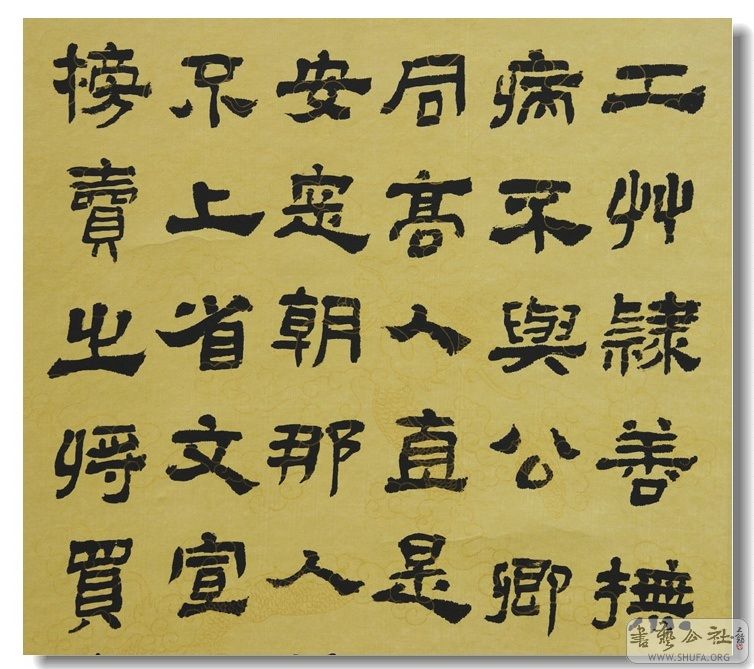 工艸隸善撫
病不與公卿
同高人直是
安定朝那人
只上省文宣
榜賣之將買
書藝公社
WWW.SHUFA.ORG